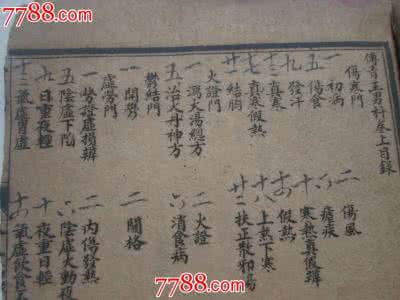 7788.com
傅青主男科卷上目錄
傷寒門
一 初病 二 傷風
五 傷食 六 瘧疾
九 發汗 十 寒熱真假辨
真寒 假熱
十七 真寒假熱 十八 上熱下寒
廿一 結胸 廿二 扶正散邪湯
火證門
一 瀉火湯總方 二 火證
五 治火丹神方 六 消食病
鬱結門
一 開鬱 二 關格
虛勞門
一 勞證虛損辨 二 內傷發熱
五 陰虛下陷 六 陰虛火動夜
九 日重夜輕 十 夜重日輕
十三 氣虛胃虛 氣虛飲食
7788.com